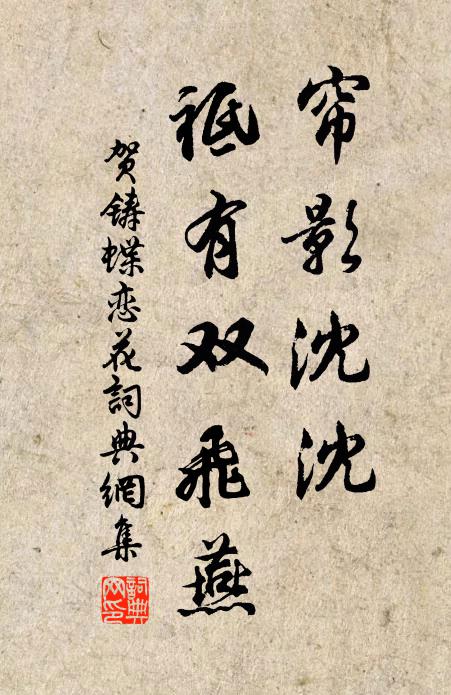 帘影沈沈
祗有双飞燕
贺铸蝶恋花词典網集
詞典网印